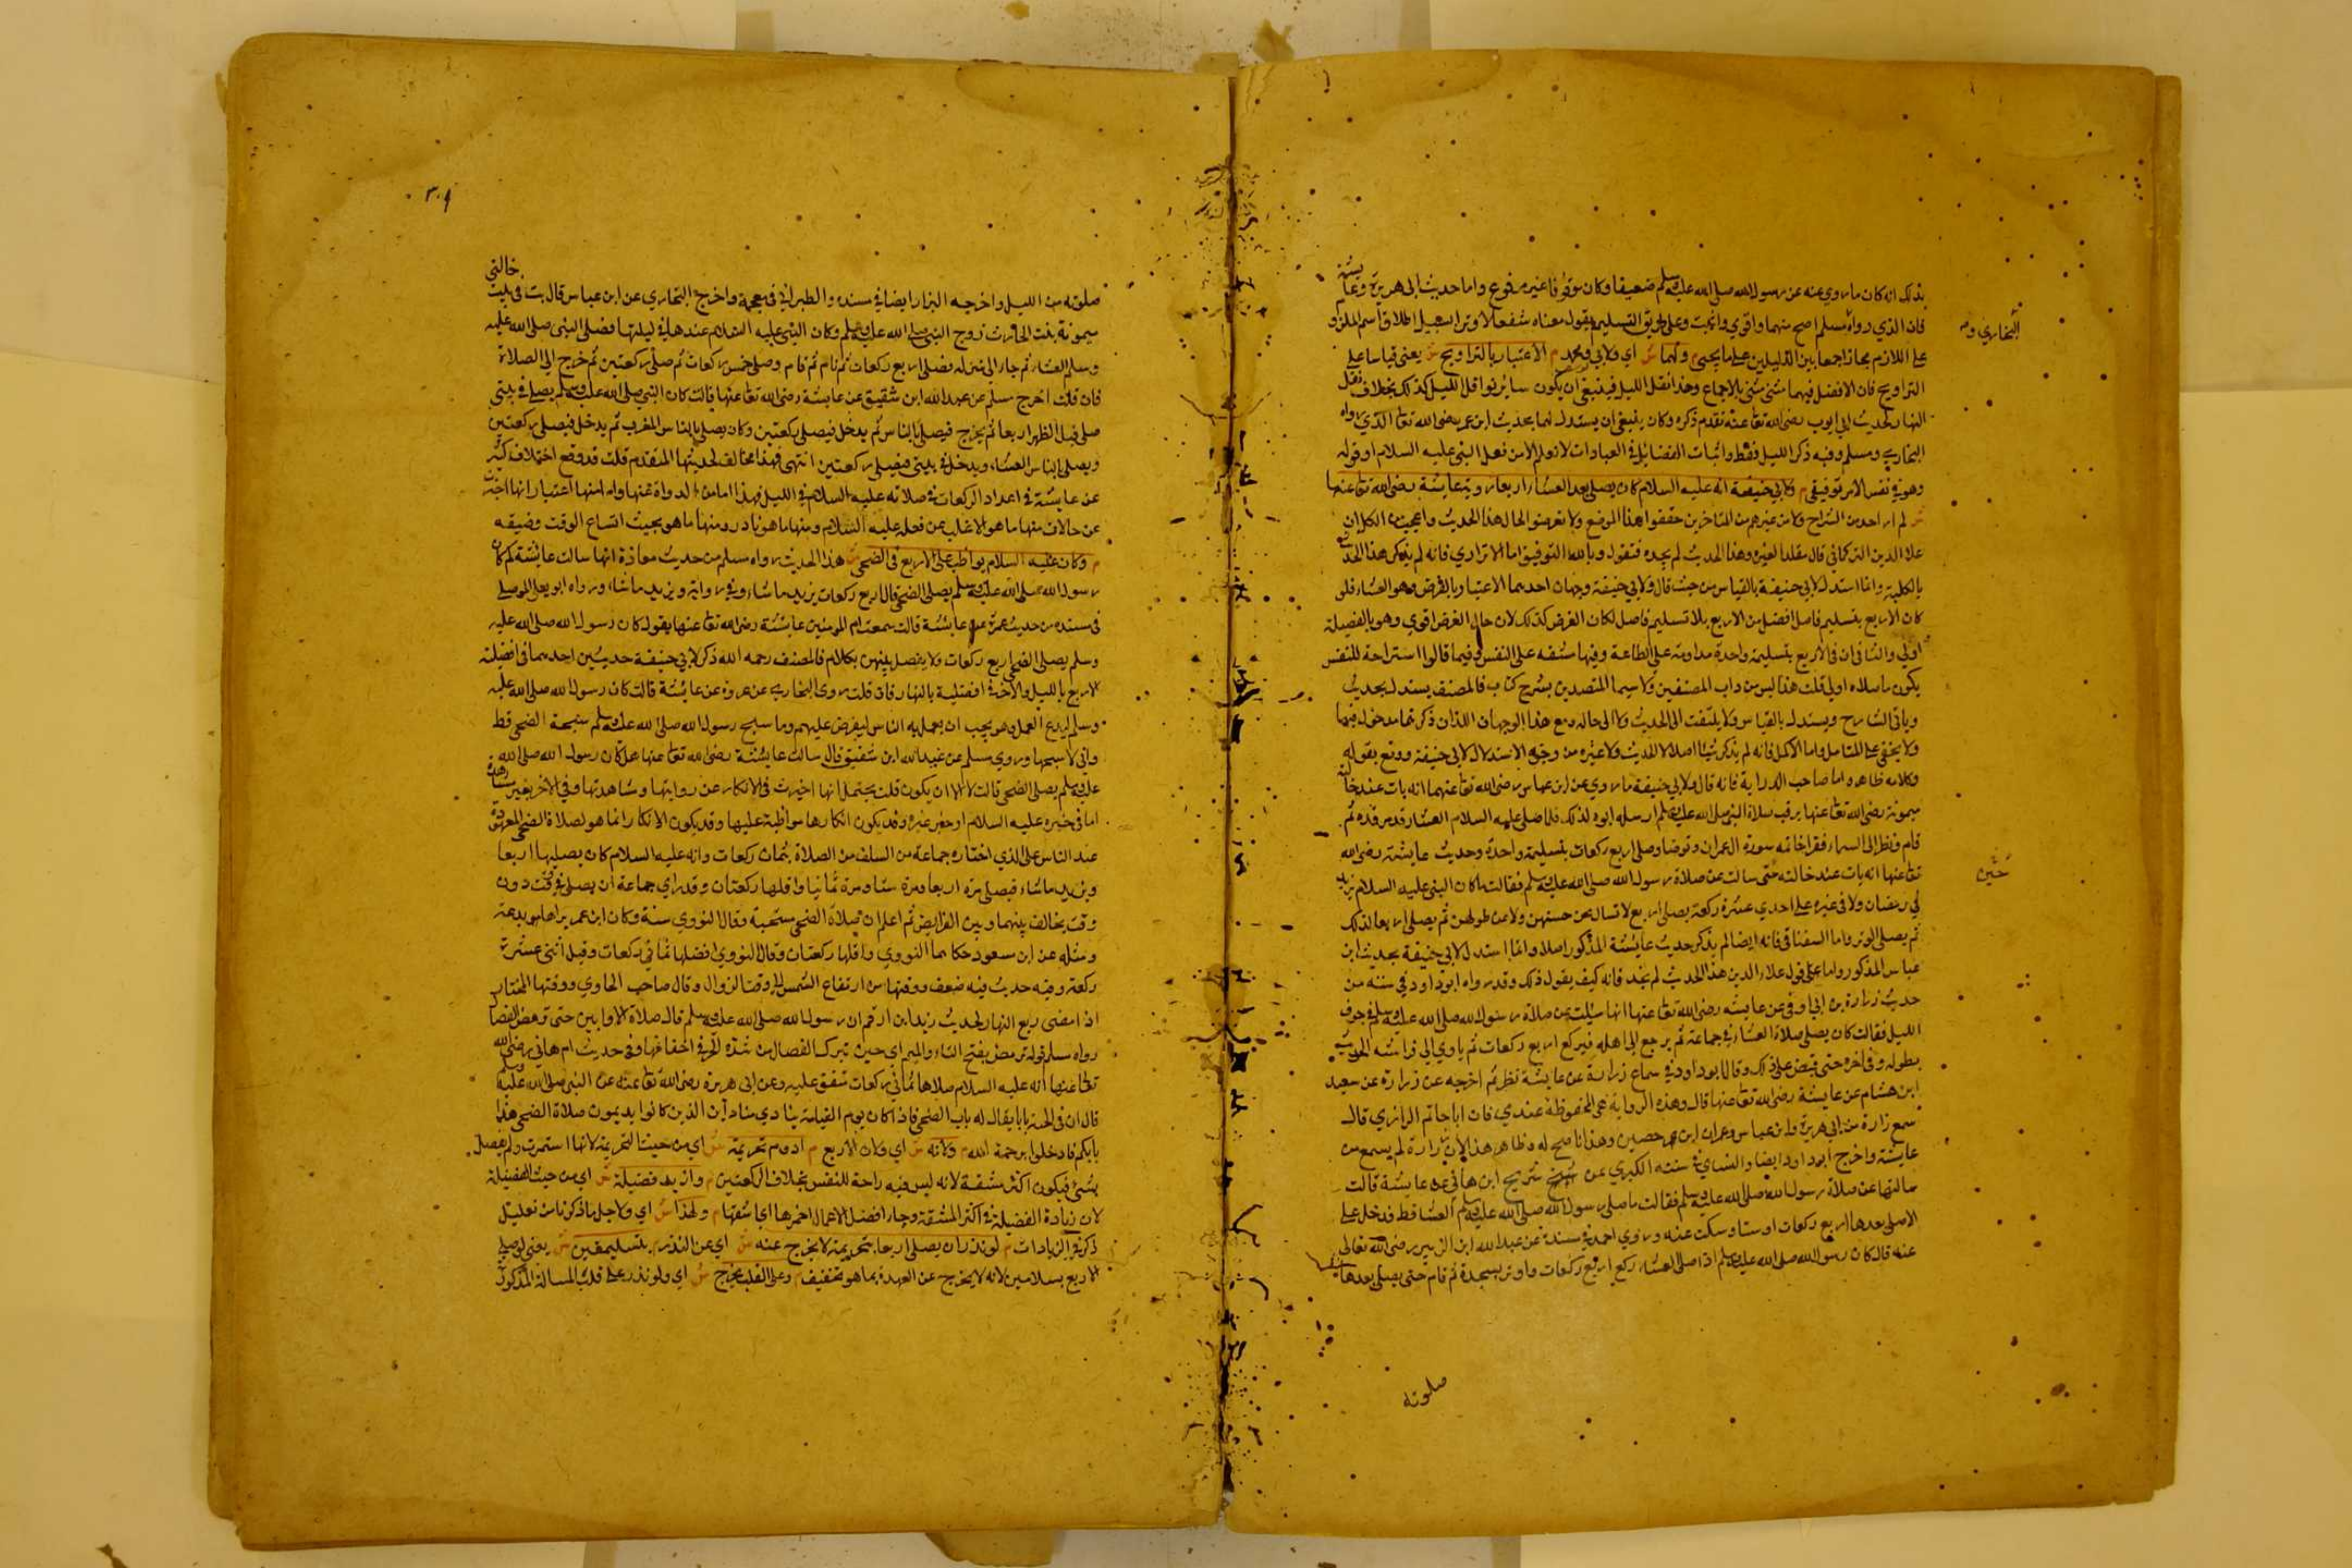 بذلك انه كان ما روي عنه عن رسول الله صلى الله عليه وسلم ضعيفا وكان موقوفا غير مرفوع واما حديث ابي هريرة وعايشة
فان الذي رواه مسلم اصح منهما واقوي واثبت وعلى طريق التسليم نقول معناه شفعا لا وترا سبيل اطلاق اسم الملزوم
البخاري و
على اللازم مجازا جمعا بين الدليلين على ما يجيئ ولهما ش اي ولابي ومحمد م الاعتبار بالتراويح ش يعني قياسا على
التراويح فان الافضل فيهما مثنى مثنى بالاجماع وهذا نفل الليل فينبغي ان يكون سائر نوافل الليل كذلك بخلاف نفل
النهار لحديث ابي ايوب رضي الله تعا عنه تقدم ذكره وكان ينبغي ان يستدل لهما بحديث ابن عمر رضي الله تعا الذي رواه
البخاري ومسلم وفيه ذكر الليل فقط واثبات الفضائل في العبادات لا تعلم الا من فعل النبي عليه السلام او قوله
وهو في نفس الامر توقيفي م ولابي حنيفة انه عليه السلام كان يصلي بعد العشاء اربعا روته عايشة رضي الله تعا عنها
ش لم ار احد من الشراح ولا من غيرهم من المتاخرين حققوا هذا الموضع ولا تعرضوا لحال هذا الحديث واعجب من الكل ان
علا الدين التركماني قال مقلدا لغيره وهذا الحديث لم يجده فنقول وبالله التوفيق اما الاترازي فانه لم يذكر هذا الحديث
بالكلية وانما استدل لابي حنيفة بالقياس من حيث قال ولابي حنيفة وجهان احدهما الاعتبار بالفرض وهو العشاء فلو
كان الاربع بتسليم فاصل افضل من الاربع بلا تسليم فاصل لكان الفرض كذلك لان حال الفرض اقوي وهو بالفضيلة
اولى والثاني ان في الاربع بتسليمة واحدة مداومة على الطاعة وفيها مشقة على النفس وفيما قالوا استراحة للنفس
يكون ما صلاه اولى قلت هذا ليس من داب المصنفين ولا سيما المتصدين بشرح كتاب فالمصنف يستدل بحديث
وياتي الشارح ويستدل بالقياس ولا يلتفت الى الحديث ولا الى حاله ومع هذا الوجهان اللذان ذكرهما مدخول فيهما
ولا يخفى على المتامل واما الاكمل فانه لم يذكر شيئا اصلا لا الحديث ولا غيره من وجه الاستدلال لابي حنيفة ووقع بقوله
وكلامه ظاهر واما صاحب الدراية فانه قال ولابي حنيفة ما روي عن ابن عباس رضي الله تعا عنهما انه بات عند خالته
ميمونة رضي الله تعا عنها يرقب صلاة النبي صلى الله عليه وسلم ارسله ابوه لذلك فلما صلى عليه السلام العشاء رقد مرقده ثم
قام ونظر الى السماء فقرا خاتمة سورة ال عمران وتوضا وصلى اربع ركعات بتسليمة واحدة وحديث عايشة رضي الله
حين
تعا عنها انه بات عند خالته حتى سالت عن صلاة رسول الله صلى الله عليه وسلم فقالت ما كان النبي عليه السلام يزيد
في رمضان ولا في غيره على احدي عشرة ركعة يصلي اربع لا تسال عن حسنهن ولا عن طولهن ثم يصلي اربعا لذلك
ثم يصلي الوتر واما السغناقي فانه ايضا لم يذكر حديث عايشة المذكور اصلا وانما استدل لابي حنيفة بحديث ابن
عباس المذكور واما على قول علاء الدين هذا الحديث لم نجد فانه كيف يقول ذلك وقد رواه ابو داود في سننه من
حديث زرارة بن ابي اوفى عن عايشة رضي الله تعا عنها انها سئلت عن صلاة رسول الله صلى الله عليه وسلم في جوف
الليل فقالت كان يصلي صلاة العشاء في جماعة ثم يرجع الى اهله فيركع اربع ركعات ثم ياوي الى فراشه الحديث
بطوله وفي اخره حتى قبض على ذلك وقال ابو داود في سماع زرارة عن عايشة نظر ثم اخرجه عن زرارة عن سعيد
ابن هشام عن عايشة رضي الله تعا عنها قال وهذه الرواية هي المحفوظة عندي فان ابا حاتم الرازي قال
سمع زرارة من ابي هريرة وابن عباس وعمران ابن حصين وهذا ما صح له وظاهر هذا الان زرارة لم يسمع من
عايشة واخرج ابو داود ايضا والنساي في سننه الكبري عن شريح ابن هاني عن عايشة قالت
سالتها عن صلاة رسول الله صلى الله عليه وسلم فقالت ما صلى رسول الله صلى الله عليه وسلم العشاء قط فدخل علي
الا صلى بعدها اربع ركعات او ستا وسكت عنه وروي احمد في مسنده عن عبد الله ابن الزبير رضي الله تعالى
عنه قال كان رسول الله صلى الله عليه وسلم اذا صلى العشاء ركع اربع ركعات واوتر بسجدة ثم قام حتى يصلي بعدها
صلوته
٣٠٩
صلوته من الليل واخرجه البزار ايضا في مسنده والطبراني في معجمه واخرج البخاري عن ابن عباس قال بت في بيت خالتي
ميمونة بنت الحارث زوج النبي صلى الله عليه وسلم وكان النبي عليه السلام عندها في ليلتها فصلى النبي صلى الله عليه
وسلم العشاء ثم جاء الى منزله فصلى اربع ركعات ثم نام ثم قام وصلى خمس ركعات ثم صلى ركعتين ثم خرج الى الصلاة
فان قلت اخرج مسلم عن عبد الله ابن شقيق عن عايشة رضي الله تعا عنها قالت كان النبي صلى الله عليه وسلم يصلي في بيتي
صلى قبل الظهر اربعا ثم يخرج فيصلي بالناس ثم يدخل فيصلي ركعتين وكان يصلي بالناس المغرب ثم يدخل فيصلي ركعتين
ويصلي بالناس العشاء ويدخل في بيتي فيصلي ركعتين انتهى فهذا مخالف لحديثها المتقدم قلت قد وقع اختلاف كثير
عن عايشة في اعداد الركعات في صلاته عليه السلام في الليل فهذا اما من الرواة عنها واما منها اعتبار انها اخبرت
عن حالات منها ما هو الاغلب من فعله عليه السلام ومنها ما هو نادر ومنها ما هو بحيث اتساع الوقت وضيقه
م وكان عليه السلام يواظب على الاربع في الضحى ش هذا الحديث رواه مسلم من حديث معاذة انها سالت عائشة كم كان
رسول الله صلى الله عليه وسلم يصلي الضحى قالت اربع ركعات يزيد ما شاء وفي رواية ويزيد ما شاء ورواه ابو يعلى الموصلي
في مسنده من حديث عمرة عن عايشة قالت سمعت ام المومنين عايشة رضي الله تعا عنها يقول كان رسول الله صلى الله عليه
وسلم يصلي الضحى اربع ركعات ولا يفصل بينهن بكلام فالمصنف رحمه الله ذكر لابي حنيفة حديثين احدهما في افضلية
الاربع بالليل والاخر في افضلية بالنهار فان قلت روى البخاري عن عروة عن عائشة قالت كان رسول الله صلى الله عليه
وسلم ليدع العمل وهو يحب ان يعمل به الناس ليفرض عليهم وما سبح رسول الله صلى الله عليه وسلم سبحة الضحى قط
واني لاسبحها وروي مسلم عن عبد الله ابن شقيق قال سالت عايشة رضي الله تعا عنها هل كان رسول الله صلى الله
عليه وسلم يصلي الضحى قالت لا الا ان يكون قلت يحتمل انها اخبرت في الانكار عن روايتها ومشاهدتها وفي الاخر بغير مشاهدة
اما في خبره عليه السلام او خبر غيره وقد يكون انكارها مواظبة عليها وقد يكون الانكار انما هو لصلاة الضحى المعهودة
عند الناس على الذي اختاره جماعة من السلف من الصلاة ثمان ركعات وانه عليه السلام كان يصليها اربعا
ويزيد ما شاء فيصلي مرة اربعا ومرة ستا ومرة ثمانيا واقلها ركعتان وقد راي جماعة ان يصلي في وقت دون
وقت يخالف بينهما وبين الفرايض ثم اعلم ان صلاة الضحى مستحبة وقال النووي سنة وكان ابن عمر يراها بدعة
ومثله عن ابن مسعود حكاهما النووي واقلها ركعتان وقال النووي افضلها ثماني ركعات وقيل اثني عشرة
ركعة وفيه حديث فيه ضعف ووقتها من ارتفاع الشمس الى وقت الزوال وقال صاحب الحاوي ووقتها المختار
اذا مضى ربع النهار لحديث زيد ابن ارقم ان رسول الله صلى الله عليه وسلم قال صلاة الاوابين حتى ترمض الفصال
رواه مسلم قوله ترمض بفتح التاء والميم اي حين تبرك الفصال من شدة الحر في اخفافها وفي حديث ام هاني رضي الله
تعا عنها انه عليه السلام صلاها ثماني ركعات متفق عليه وعن ابي هريرة رضي الله تعا عنه عن النبي صلى الله عليه وسلم
قال ان في الجنة بابا يقال له باب الضحى فاذا كان يوم القيامة ينادي مناد اين الذين كانوا يديمون صلاة الضحى هذا
بابكم فادخلوا برحمة الله م ولانه ش اي ولان الاربع م ادوم تحريمة ش اي من حيث التحريمة لانها استمرت ولم يفصل
بشئ فيكون اكثر مشقة لانه ليس فيه راحة للنفس بخلاف الركعتين م وازيد فضيلة ش اي من حيث الفضيلة
لان زيادة الفضيلة في اكثر المشقة وجاء افضل الاعمال احمزها اي اشقها م ولهذا ش اي ولاجل ما ذكرنا من تعليل
ذكر في الزيادات م لو نذر ان يصلي اربعا بتحريمة لا يخرج عنه ش اي عن النذر م بتسليمتين ش يعني لو صلى
الاربع بسلامين لانه لا يخرج عن العهدة بما هو تخفيف م وعلى القلب يخرج ش اي ولو نذر على قلب المسالة المذكورة